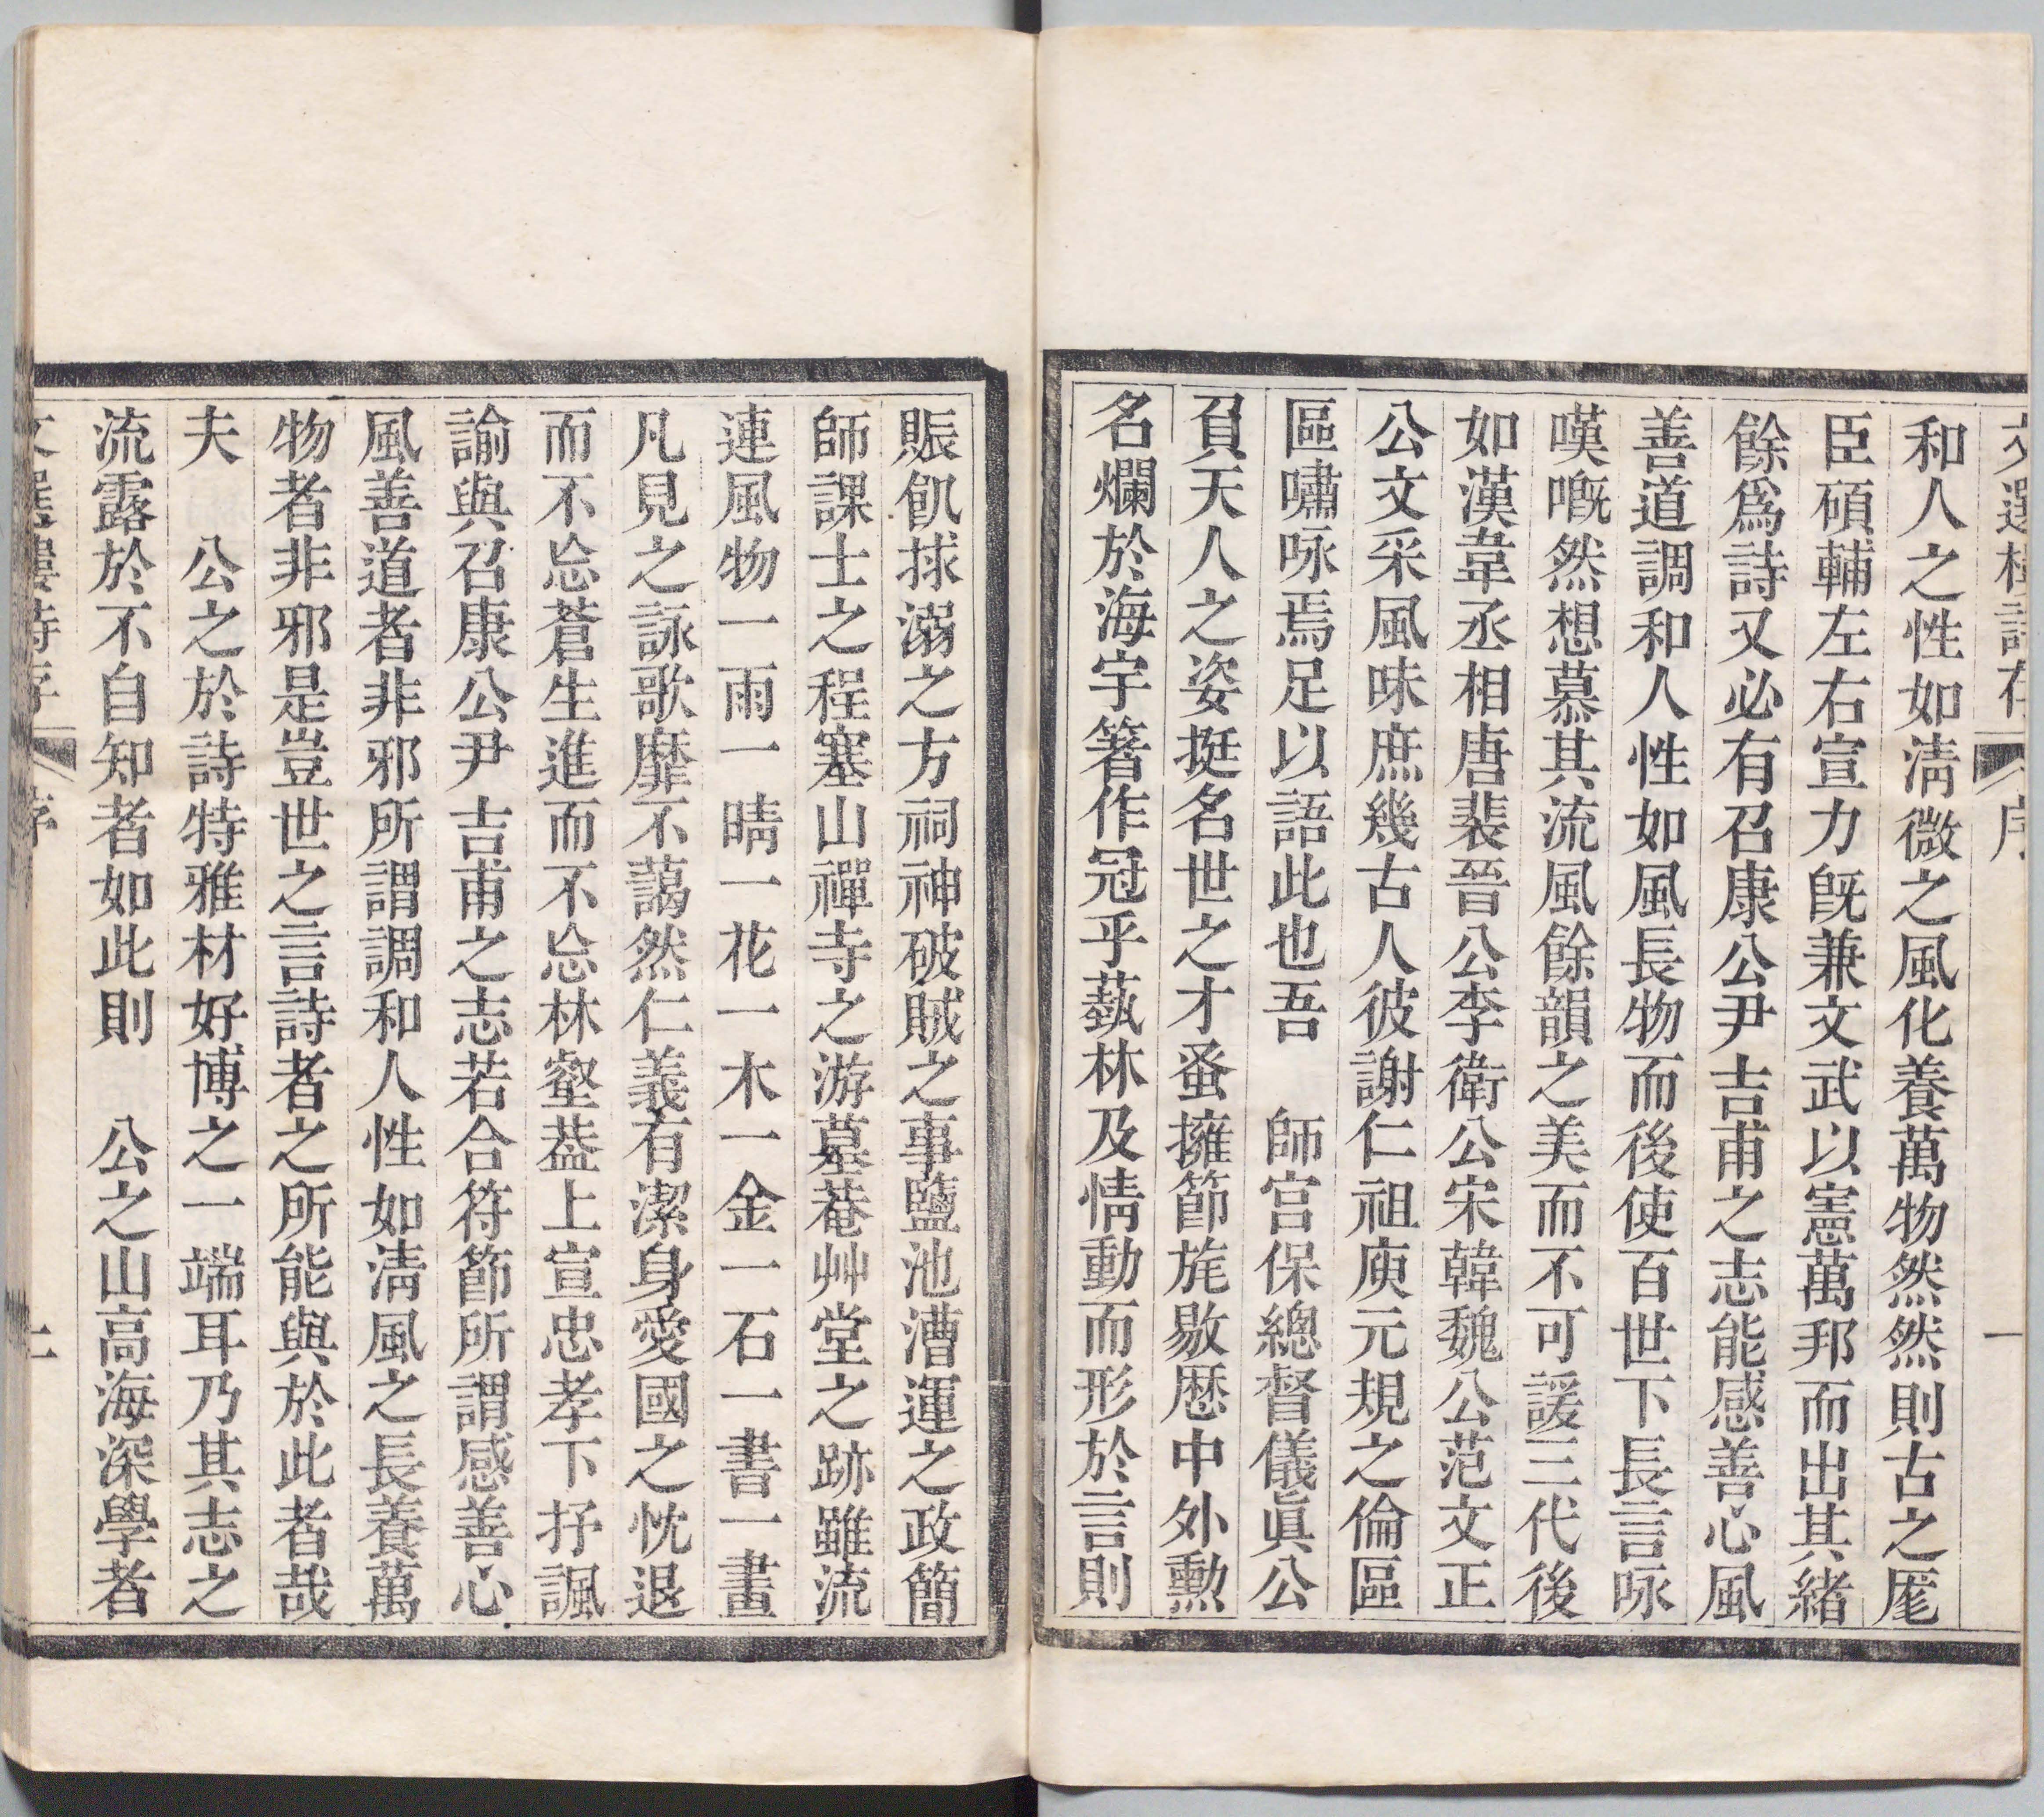 文選樓詩存 序 一
和人之性如淸微之風化養萬物然然則古之厖
臣碩輔左右宣力旣兼文武以憲萬邦而出其緖
餘爲詩又必有召康公尹吉甫之志能感善心風
善道調和人性如風長物而後使百世下長言咏
嘆嘅然想慕其流風餘韻之美而不可諼三代後
如漢韋丞相唐裴晉公李衛公宋韓魏公范文正
公文采風味庶幾古人彼謝仁祖庾元規之倫區
區嘯咏焉足以語此也吾　師宮保總督儀眞公
負天人之姿挺名世之才蚤擁節旄敭歷中外勲
名爛於海宇箸作冠乎藝林及情動而形於言則
賑飢捄溺之方祠神破賊之事鹽池漕運之政簡
師課士之程塞山禪寺之游墓菴艸堂之跡雖流
連風物一雨一晴一花一木一金一石一書一畫
凡見之詠歌靡不藹然仁義有潔身愛國之忱退
而不忘蒼生進而不忘林壑葢上宣忠孝下抒諷
諭與召康公尹吉甫之志若合符節所謂感善心
風善道者非邪所謂調和人性如淸風之長養萬
物者非邪是豈世之言詩者之所能與於此者哉
夫　公之於詩特雅材好博之一端耳乃其志之
流露於不自知者如此則　公之山高海深學者
文選樓詩存 序 二